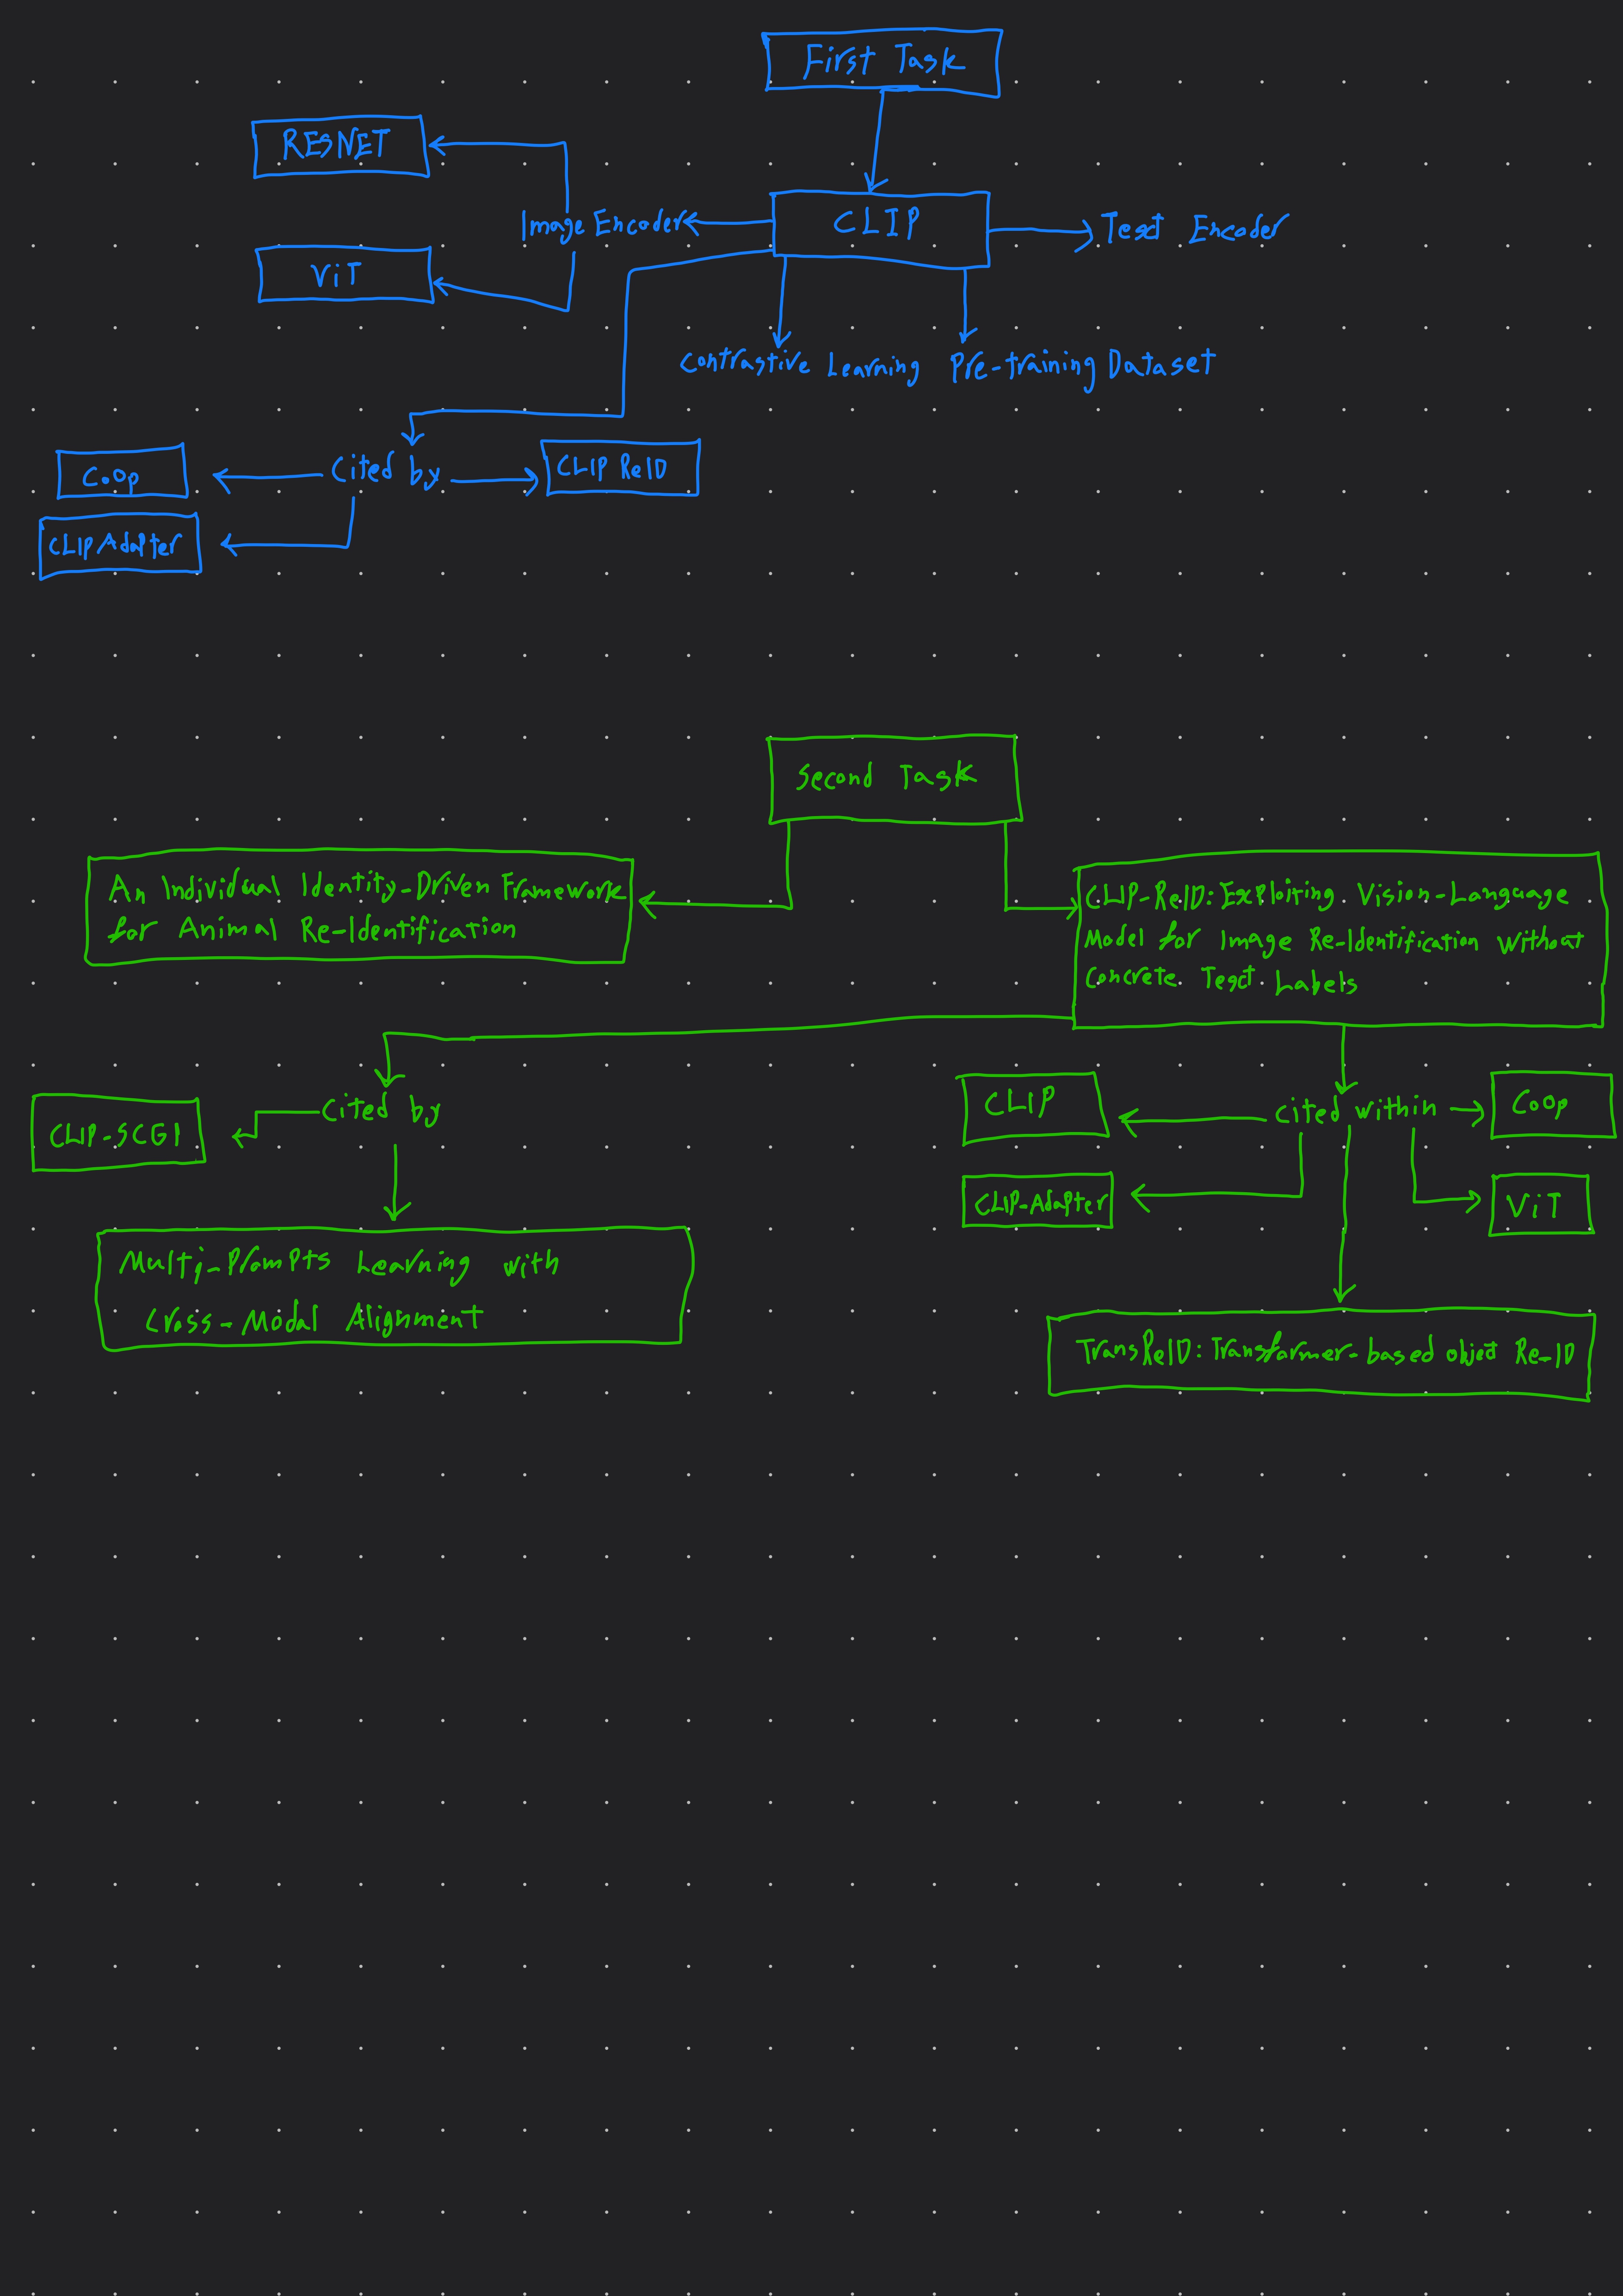 First Task
RESNET
Image Encoder
CLIP
Text Encoder
ViT
Contrastive Learning
Pre-training Dataset
CoOp
Cited by
CLIP ReID
CLIP Adapter
Second Task
An Individual Identity-Driven Framework
for Animal Re-Identification
CLIP-ReID: Exploiting Vision-Language
Model for Image Re-Identification Without
Concrete Text Labels
Cited by
CLIP-SCGI
Multi-Prompts Learning with
Cross-Modal Alignment
CLIP
Cited within
CoOp
CLIP-Adapter
ViT
TransReID: Transformer-based object Re-ID